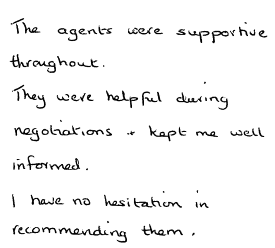 The agents were supportive
throughout.
They were helpful during
negotiations + kept me well
informed.
I have no hesitation in
recommending them.